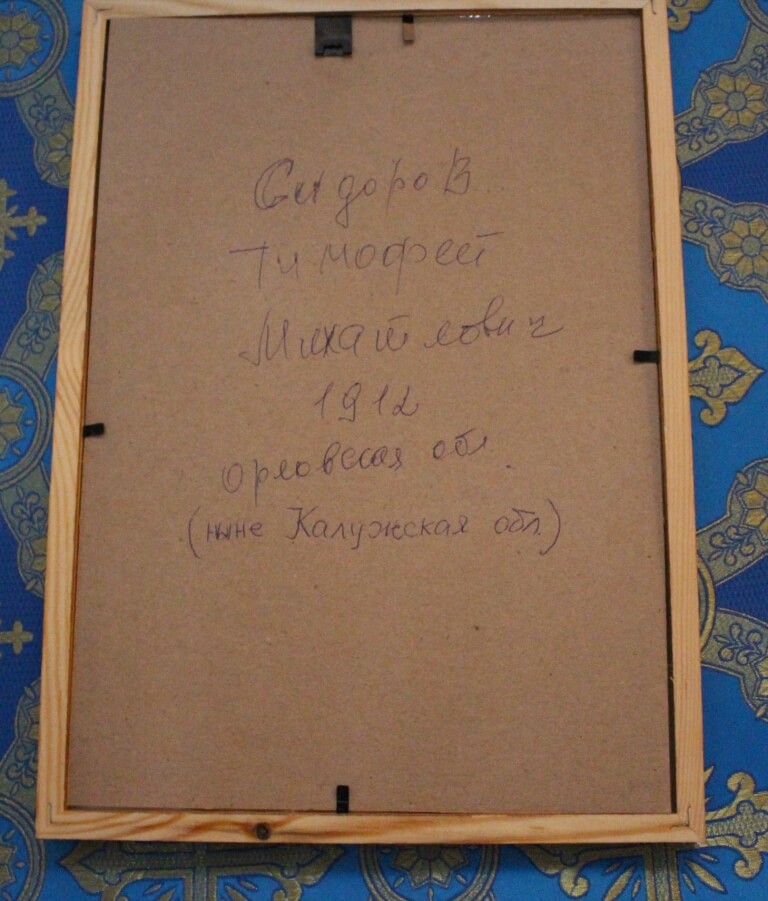 Сидоров
Тимофей
Михайлович
1912
Орловская обл.
(ныне Калужская обл.)